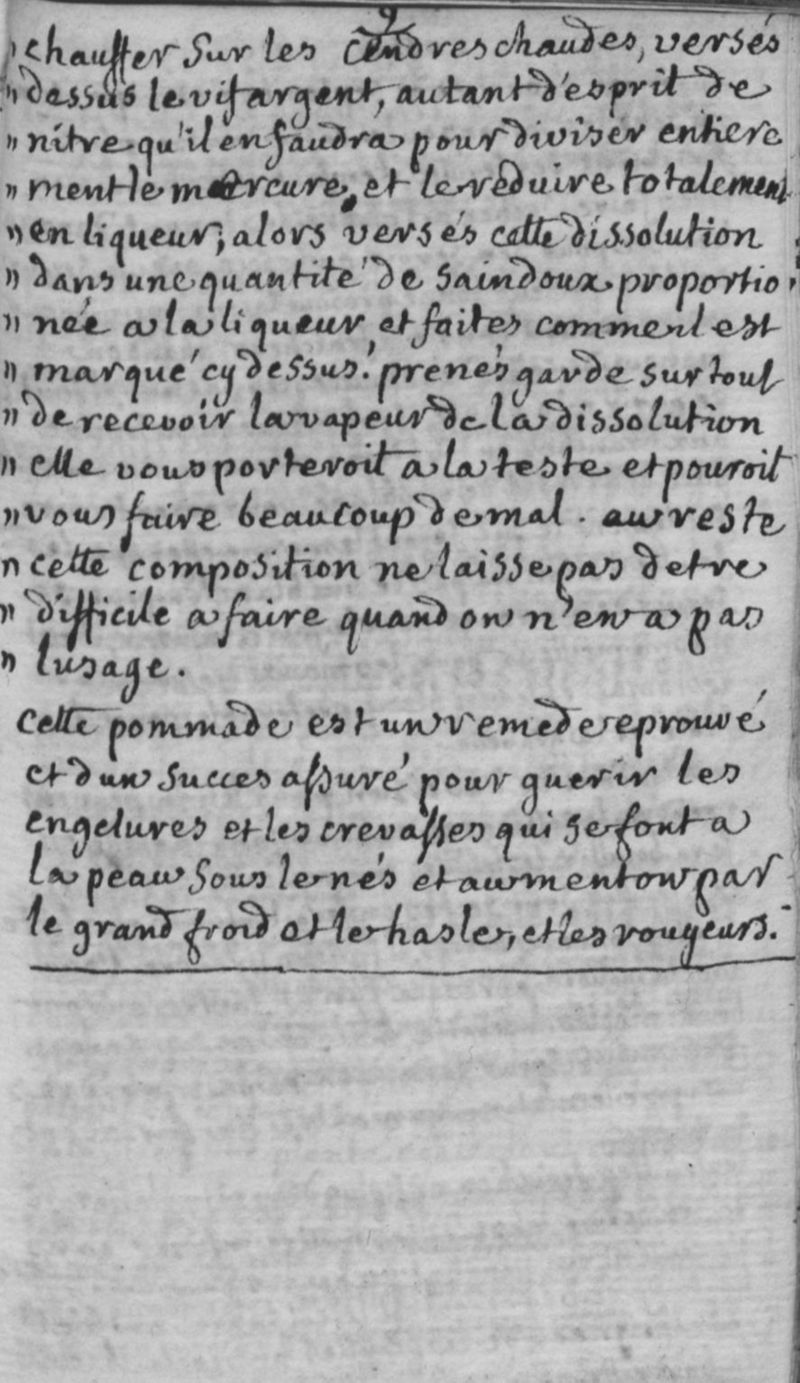 9
" chauffer sur les cendres chaudes, versés
" dessus le vif argent, autant d'esprit de
" nitre qu'il en faudra pour diviser entiere
" ment le mercure, et le reduire totalement
" en liqueur; alors versés cette dissolution
" dans une quantité de saindoux proportio
" née a la liqueur, et faites comment est
" marqué cy dessus. prenés garde sur tout
" de recevoir la vapeur de la dissolution
" elle vous porteroit a la teste et pouroit
" vous faire beaucoup de mal. au reste
" cette composition ne laisse pas detre
" difficile a faire quand on n'en a pas
" lusage.
cette pommade est un remede eprouvé
et dun succes assuré pour guerir les
engelures et les crevasses qui se font a
la peau sous le nés et au menton par
le grand froid et le hasle, et les rougeurs.